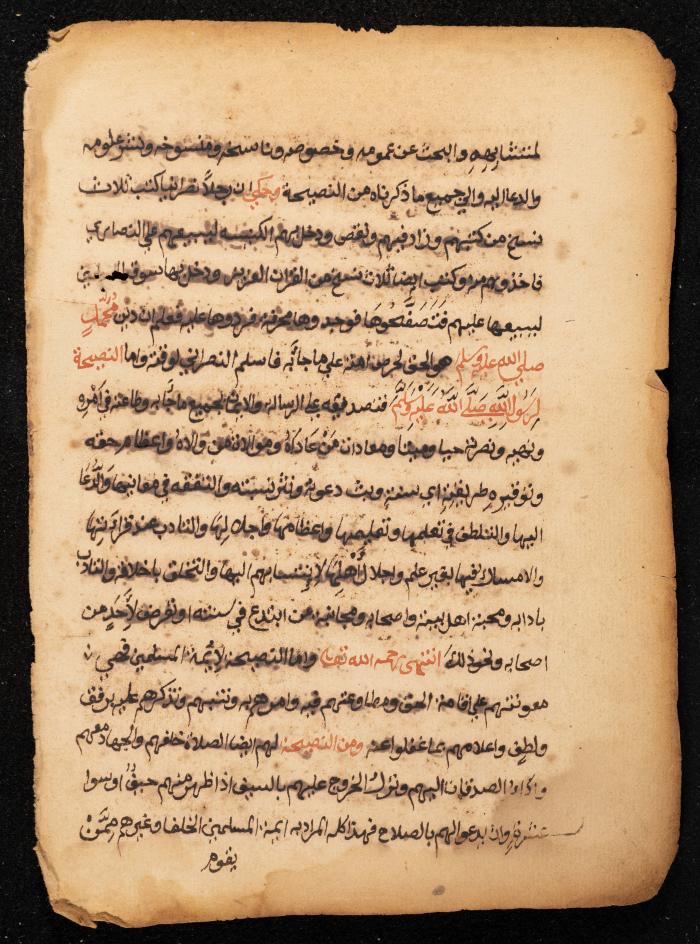 لمتشابهه والبحث عن عمومه وخصوصه وناسخه ومنسوخه ونشر علومه
والدعا اليه والي جميع ما ذكرناه من النصيحة وحكي ان رجلاً نصرانيا كتب ثلاث
نسخ من كتبهم وزاد فيهم ونقص ودخل بهم الكنيسه ليبيعهم علي النصاري
فاخذوهم منه وكتب ايضا ثلاث نسخ من القران العزيز ودخل بها سوق
ليبيعها عليهم فتصفحوها فوجدوها محرفة فردوها عليه فعلم ان دين محمد
صلي الله عليه وسلم هو الحق لحرص امته علي ما جا به فاسلم النصراني لوقته واما النصيحة
لرسول الله صلي الله عليه وسلم فتصديقه علي الرسالة والايمان بجميع ما جا به وطاعته في امره
ونهيه ونصرته حيا وميتا ومعادات من عاداه وموالات من والاه واعظام حقه
وتوقيره طريقته اي سنته وبث دعوته ونشر سنته والتفقه في معانيها والدعا
اليها والتلطف في تعلمها وتعليمها واعظامها واجلالها والتادب عند قراءتها
والامساك فيها بغير علم واجلال اهلها لانتسابهم اليها والتخلق باخلاقه والتادب
بادابه ومحبة اهل بيته واصحابه ومجانبة من ابتدع في سنته او تعرض لاحد من
اصحابه ونحو ذلك انتهى رحمه الله تعالى واما النصيحة لايمة المسلمين فهي
معونتهم علي اقامة الحق ومطاوعتهم فيه وامرهم به وتنبيهم وتذكرهم عليه برفق
ولطف واعلامهم بما غفلوا عنه ومن النصيحة لهم ايضا الصلاة خلفهم والجهاد معهم
وادا الصدقات اليهم وترك الخروج عليهم بالسيف اذا ظهر منهم حيف او سوا
عشرة وان يدعوا لهم بالصلاح فهذا كله المراد به ايمة المسلمين الخلفا وغيرهم ممن
يقوم